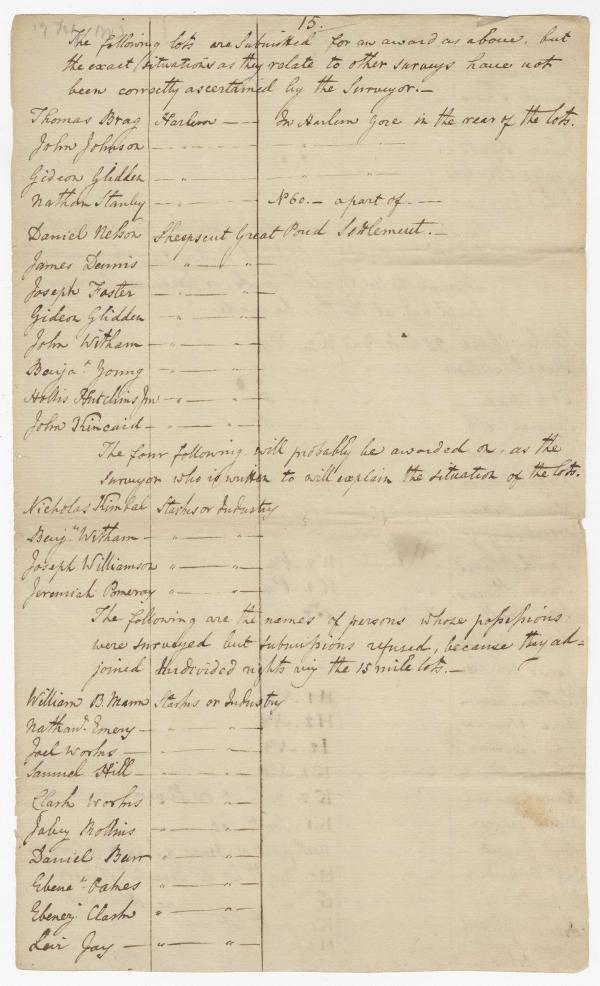 15.
The following lots are submitted for an award as above, but
the exact situations as they relate to other surveys have not
been correctly ascertained by the Surveyor.—
Thomas Brag Harlem — — In Harlem Gore in the rear of the lots.
John Johnson — " — " — "
Gideon Glidden — " — " —
Nathan Stanley — " — No 60. — a part of —
Daniel Nelson Sheepscut Great Pond Settlement.—
James Dennis — " — " —
Joseph Foster — " — " —
Gideon Glidden — " — " —
John Witham — " — " —
Benjan Young — " — " —
Hollis Hutchins Jun — " — " —
John Kincaid — " — " —
The four following will probably be awarded on, as the
Surveyor who is written to will explain the situation of the lots.
Nicholas Kimbal Starks or Industry
Benjn Witham — " — " —
Joseph Williamson " — " —
Jeremiah Pomeroy " — " —
The following are the names of persons whose possessions
were surveyed but submissions refused, because they ad=
joined undivided rights viz the 15 mile lots.—
William B. Mann Starks or Industry
Nathanl Emery — " — " —
Joel Works — " — " —
Samuel Hill — " — " —
Clark Works " — " —
Jabez Rollins " — " —
Daniel Burr " — " —
Ebener Oakes " — " —
Ebenezr Clark " — " —
Levi Jay — " — " —